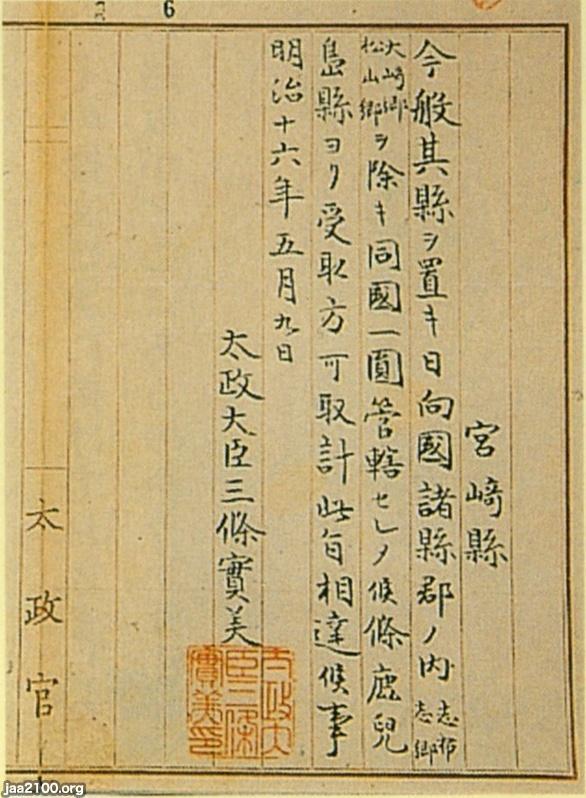 6
宮崎縣
今般其縣ヲ置キ日向國諸縣郡ノ内志布志郷
大崎郷松山郷ヲ除キ同國一圓管轄セシメ候條鹿兒
島縣ヨリ受取方可取計此旨相達候事
明治十六年五月九日
太政大臣三條實美
太政大
臣三條
實美印
太政官
jaa2100.org